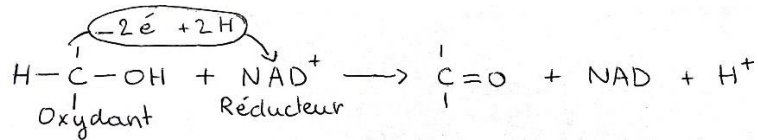 −2é +2H
H−C−OH + NAD⁺ ⟶ C=O + NAD + H⁺
Oxydant Réducteur